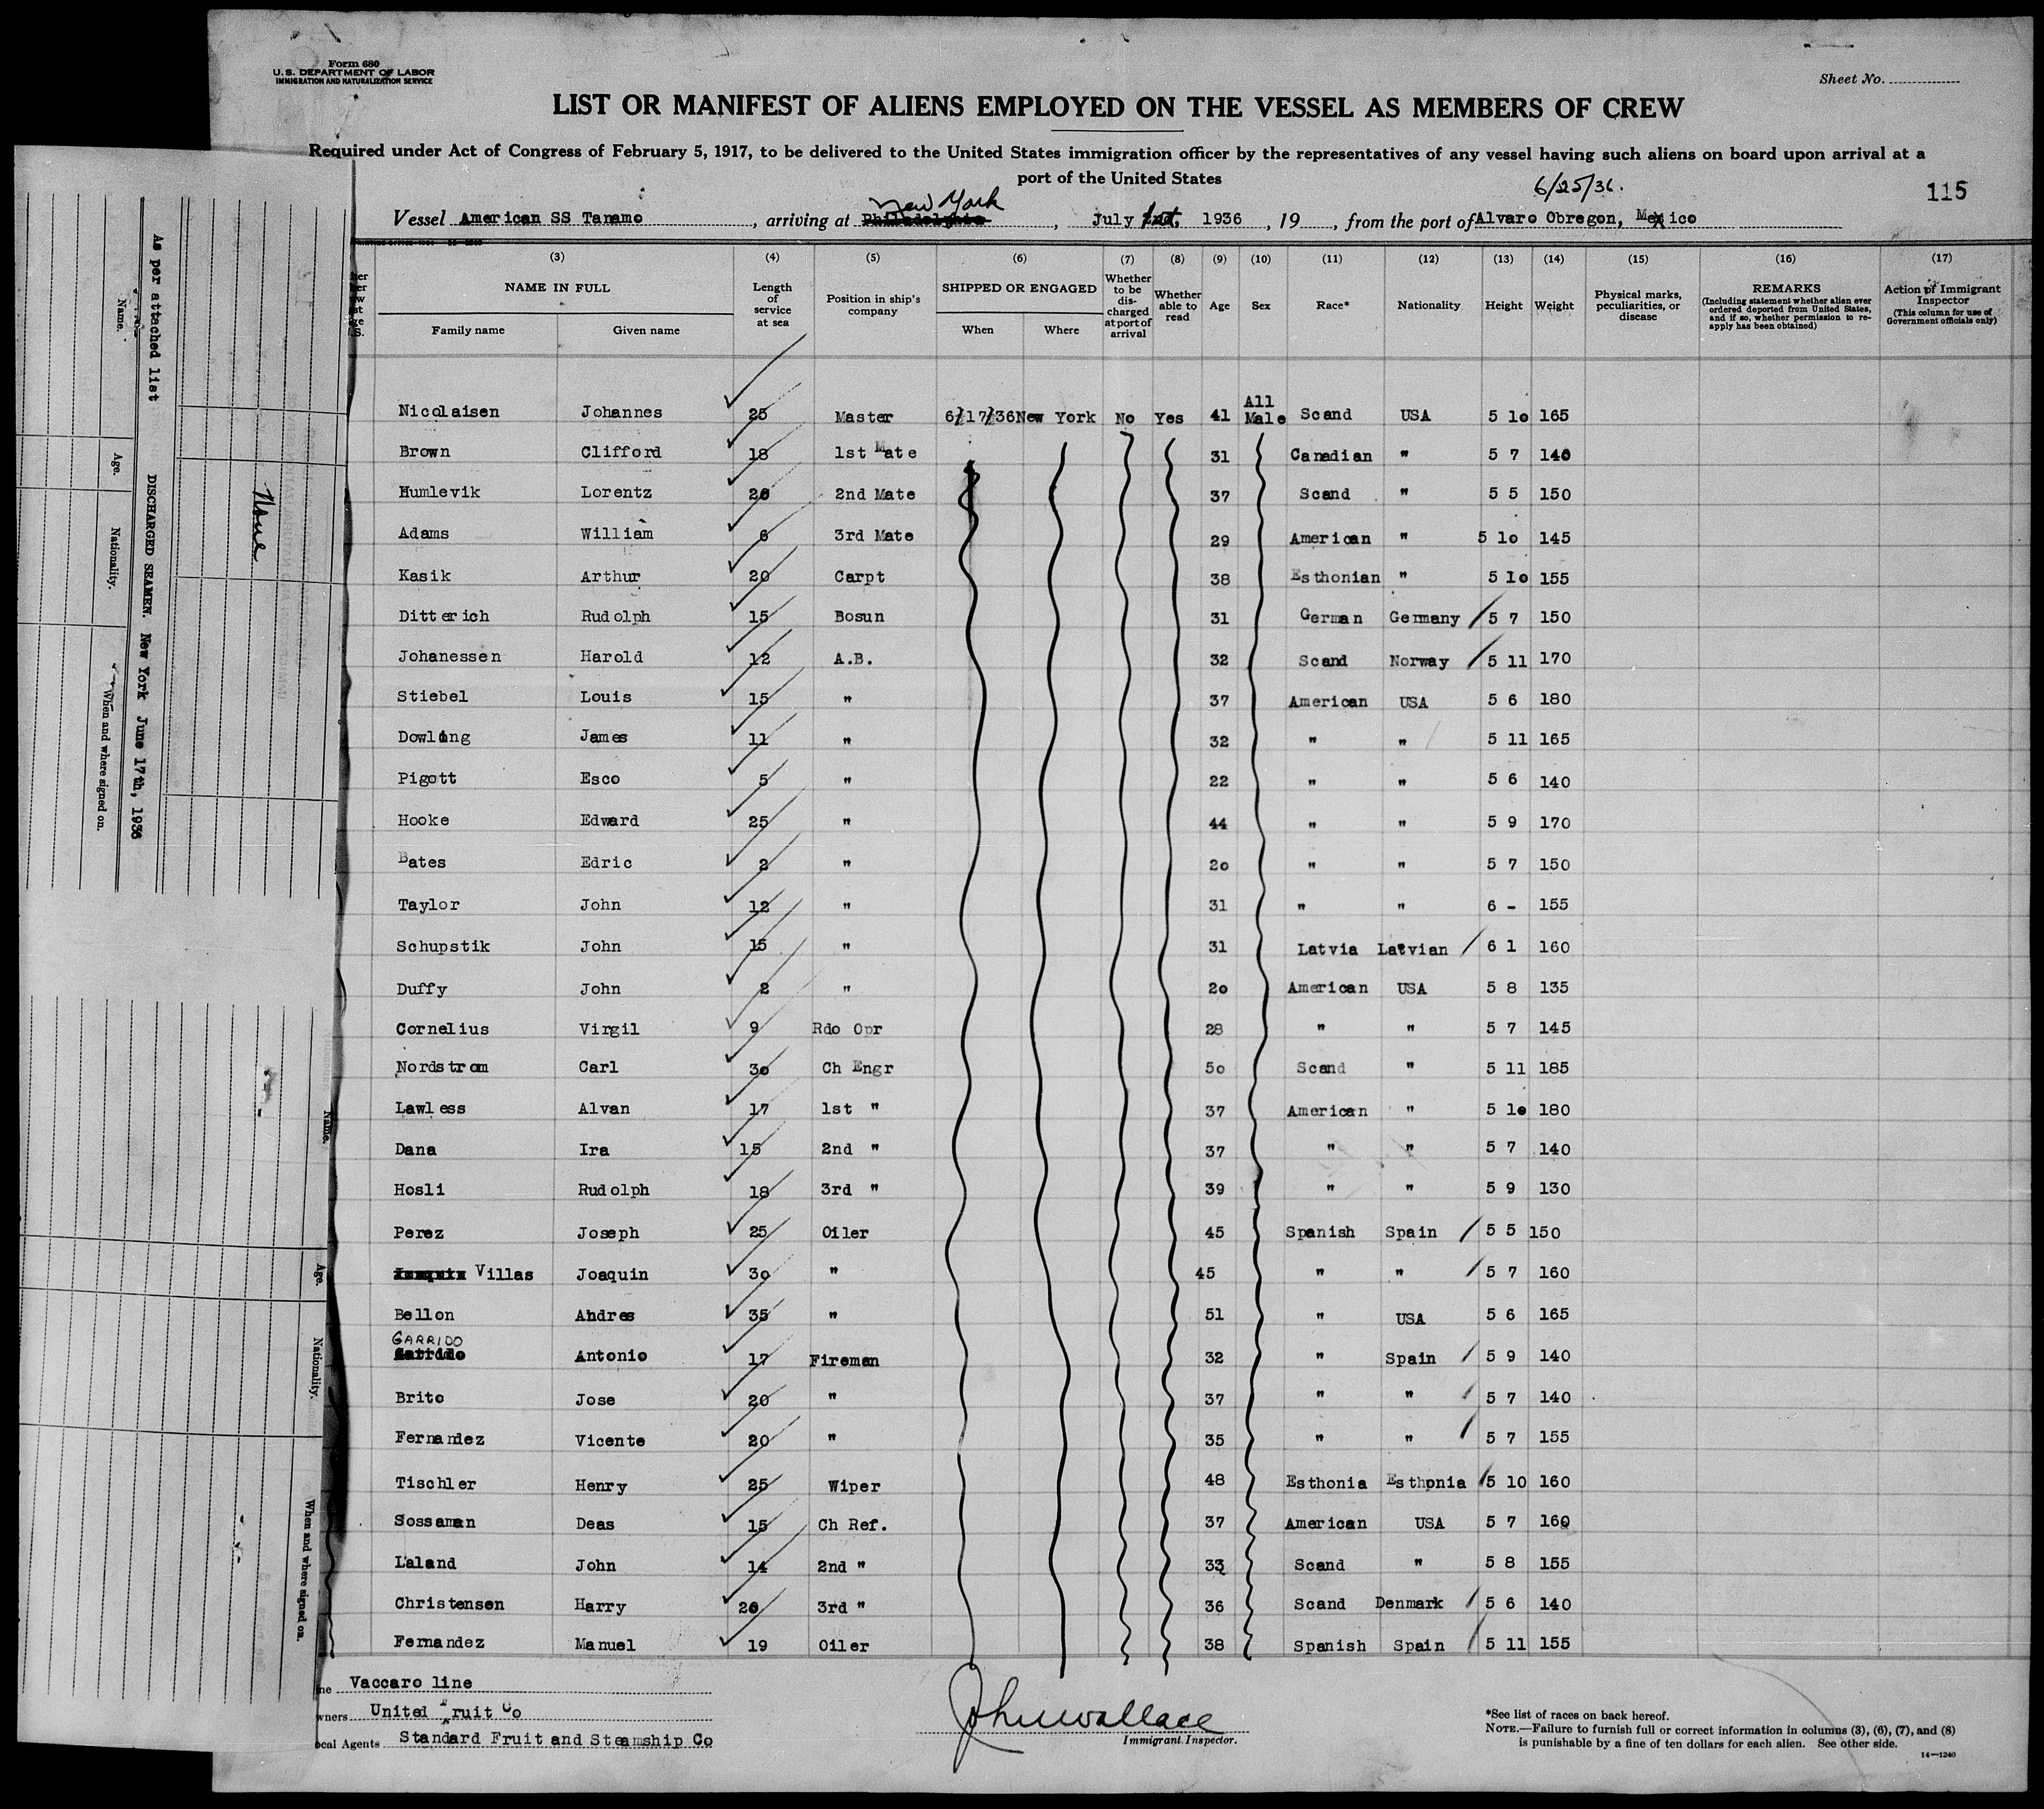 Form 680
U.S. DEPARTMENT OF LABOR
IMMIGRATION AND NATURALIZATION SERVICE
Sheet No.
LIST OR MANIFEST OF ALIENS EMPLOYED ON THE VESSEL AS MEMBERS OF CREW
Required under Act of Congress of February 5, 1917, to be delivered to the United States immigration officer by the representatives of any vessel having such aliens on board upon arrival at a
port of the United States
6/25/36.
115
New York
Vessel American SS Tanamo, arriving at Philadelphia, July 1st, 1936, 19, from the port of Alvaro Obregon, Mexico
(3) (4) (5) (6) (7) (8) (9) (10) (11) (12) (13) (14) (15) (16) (17)
NAME IN FULL
Family name Given name
Length of service at sea
Position in ship's company
SHIPPED OR ENGAGED
When Where
Whether to be discharged at port of arrival
Whether able to read
Age
Sex
Race*
Nationality
Height
Weight
Physical marks, peculiarities, or disease
REMARKS
(Including statement whether alien ever ordered deported from United States, and if so, whether permission to reapply has been obtained)
Action of Immigrant Inspector
(This column for use of Government officials only)
Nicolaisen Johannes 25 Master 6/17/36 New York No Yes 41 All Male Scand USA 5 10 165
Brown Clifford 18 1st Mate 31 Canadian " 5 7 140
Humlevik Lorentz 20 2nd Mate 37 Scand " 5 5 150
Adams William 6 3rd Mate 29 American " 5 10 145
Kasik Arthur 20 Carpt 38 Esthonian " 5 10 155
Ditterich Rudolph 15 Bosun 31 German Germany 5 7 150
Johanessen Harold 12 A.B. 32 Scand Norway 5 11 170
Stiebel Louis 15 " 37 American USA 5 6 180
Dowling James 11 " 32 " " 5 11 165
Pigott Esco 5 " 22 " " 5 6 140
Hooke Edward 25 " 44 " " 5 9 170
Bates Edric 2 " 20 " " 5 7 150
Taylor John 12 " 31 " " 6 - 155
Schupstik John 15 " 31 Latvia Latvian 6 1 160
Duffy John 2 " 20 American USA 5 8 135
Cornelius Virgil 9 Rdo Opr 28 " " 5 7 145
Nordstrom Carl 30 Ch Engr 50 Scand " 5 11 185
Lawless Alvan 17 1st " 37 American " 5 10 180
Dana Ira 15 2nd " 37 " " 5 7 140
Hosli Rudolph 18 3rd " 39 " " 5 9 130
Perez Joseph 25 Oiler 45 Spanish Spain 5 5 150
Villas Joaquin 30 " 45 " " 5 7 160
Bellon Andres 35 " 51 " USA 5 6 165
GARRIDO
Garrido Antonio 17 Fireman 32 " Spain 5 9 140
Brito Jose 20 " 37 " " 5 7 140
Fernandez Vicente 20 " 35 " " 5 7 155
Tischler Henry 25 Wiper 48 Esthonia Esthonia 5 10 160
Sossaman Deas 15 Ch Ref. 37 American USA 5 7 160
Laland John 14 2nd " 33 Scand " 5 8 155
Christensen Harry 20 3rd " 36 Scand Denmark 5 6 140
Fernandez Manuel 19 Oiler 38 Spanish Spain 5 11 155
ne Vaccaro line
wners United Fruit Co
ocal Agents Standard Fruit and Steamship Co
John Wallace
Immigrant Inspector.
*See list of races on back hereof.
NOTE.—Failure to furnish full or correct information in columns (3), (6), (7), and (8)
is punishable by a fine of ten dollars for each alien. See other side.
14—1240
As per attached list
DISCHARGED SEAMEN. New York June 17th, 1936
Name. Age. Nationality. When and where signed on.
None
Name. Age. Nationality. When and where signed on.